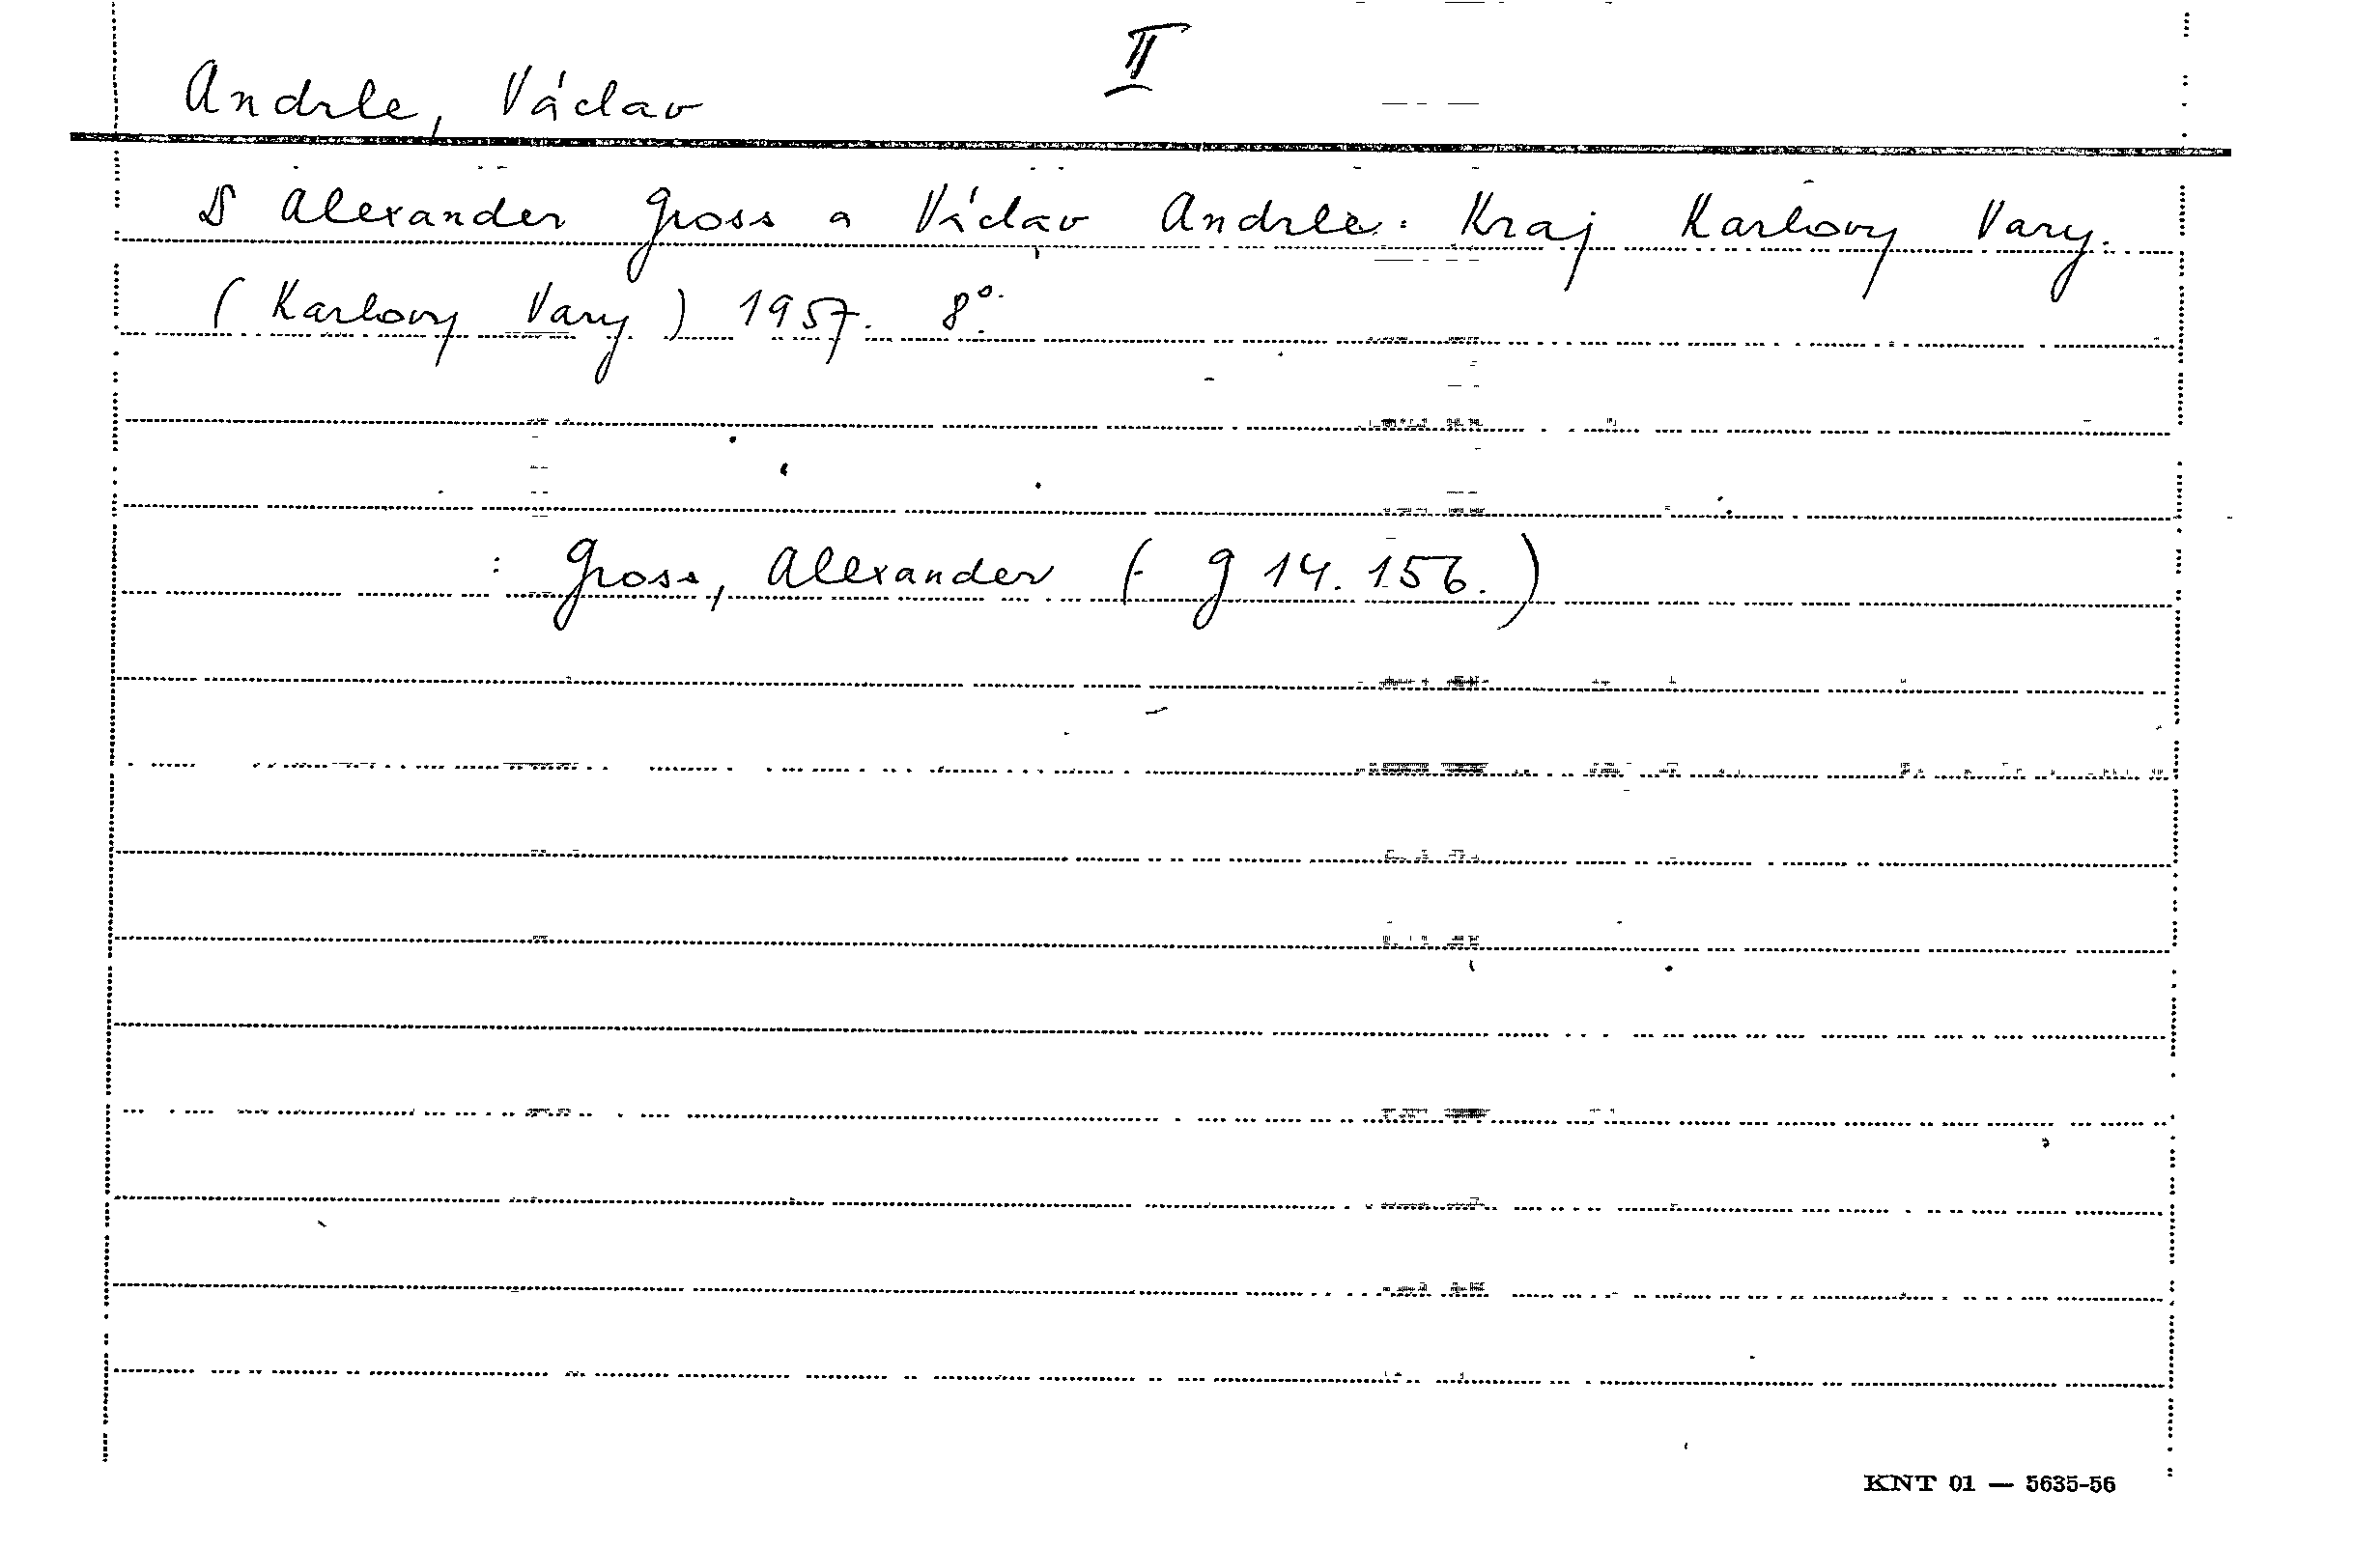 II
Andrle, Václav
Alexander Gross a Václav Andrle: Kraj Karlovy Vary.
(Karlovy Vary) 1957. 8°.
: Gross, Alexander (- g 14.156.)
KNT 01 — 5635-56